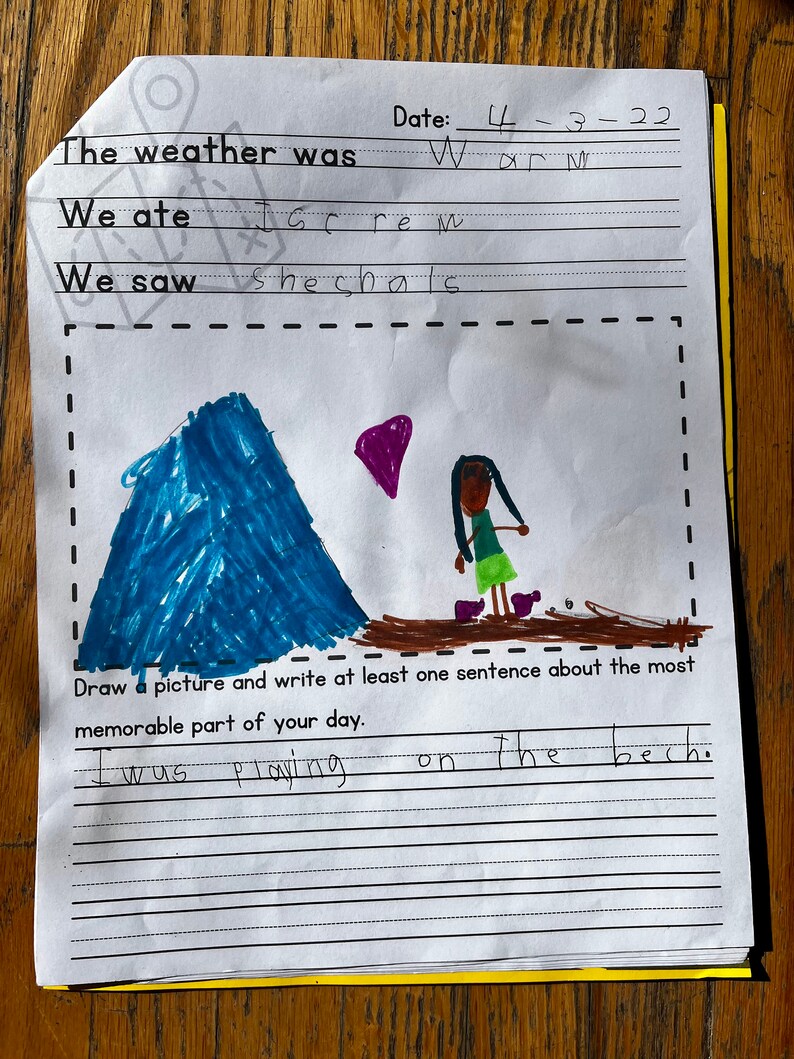 Date: 4-3-22
The weather was Warm
We ate Iscrem
We saw sheshals
Draw a picture and write at least one sentence about the most
memorable part of your day.
I wus playing on the bech.